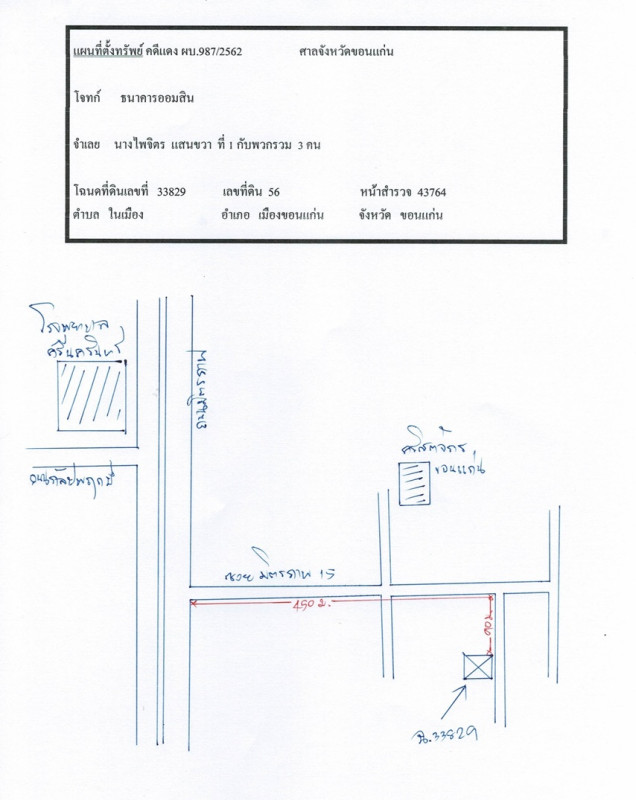 แผนที่ตั้งทรัพย์ คดีแดง ผบ.987/2562 ศาลจังหวัดขอนแก่น
โจทก์ ธนาคารออมสิน
จำเลย นางไพจิตร แสนขวา ที่ 1 กับพวกรวม 3 คน
โฉนดที่ดินเลขที่ 33829 เลขที่ดิน 56 หน้าสำรวจ 43764
ตำบล ในเมือง อำเภอ เมืองขอนแก่น จังหวัด ขอนแก่น
โรงพยาบาล
ศรีนครินทร์
ถนนมิตรภาพ
คริสตจักร
ขอนแก่น
ถนนกัลปพฤกษ์
ซอย มิตรภาพ 15
450 ม.
90 ม.
ฉ.33829